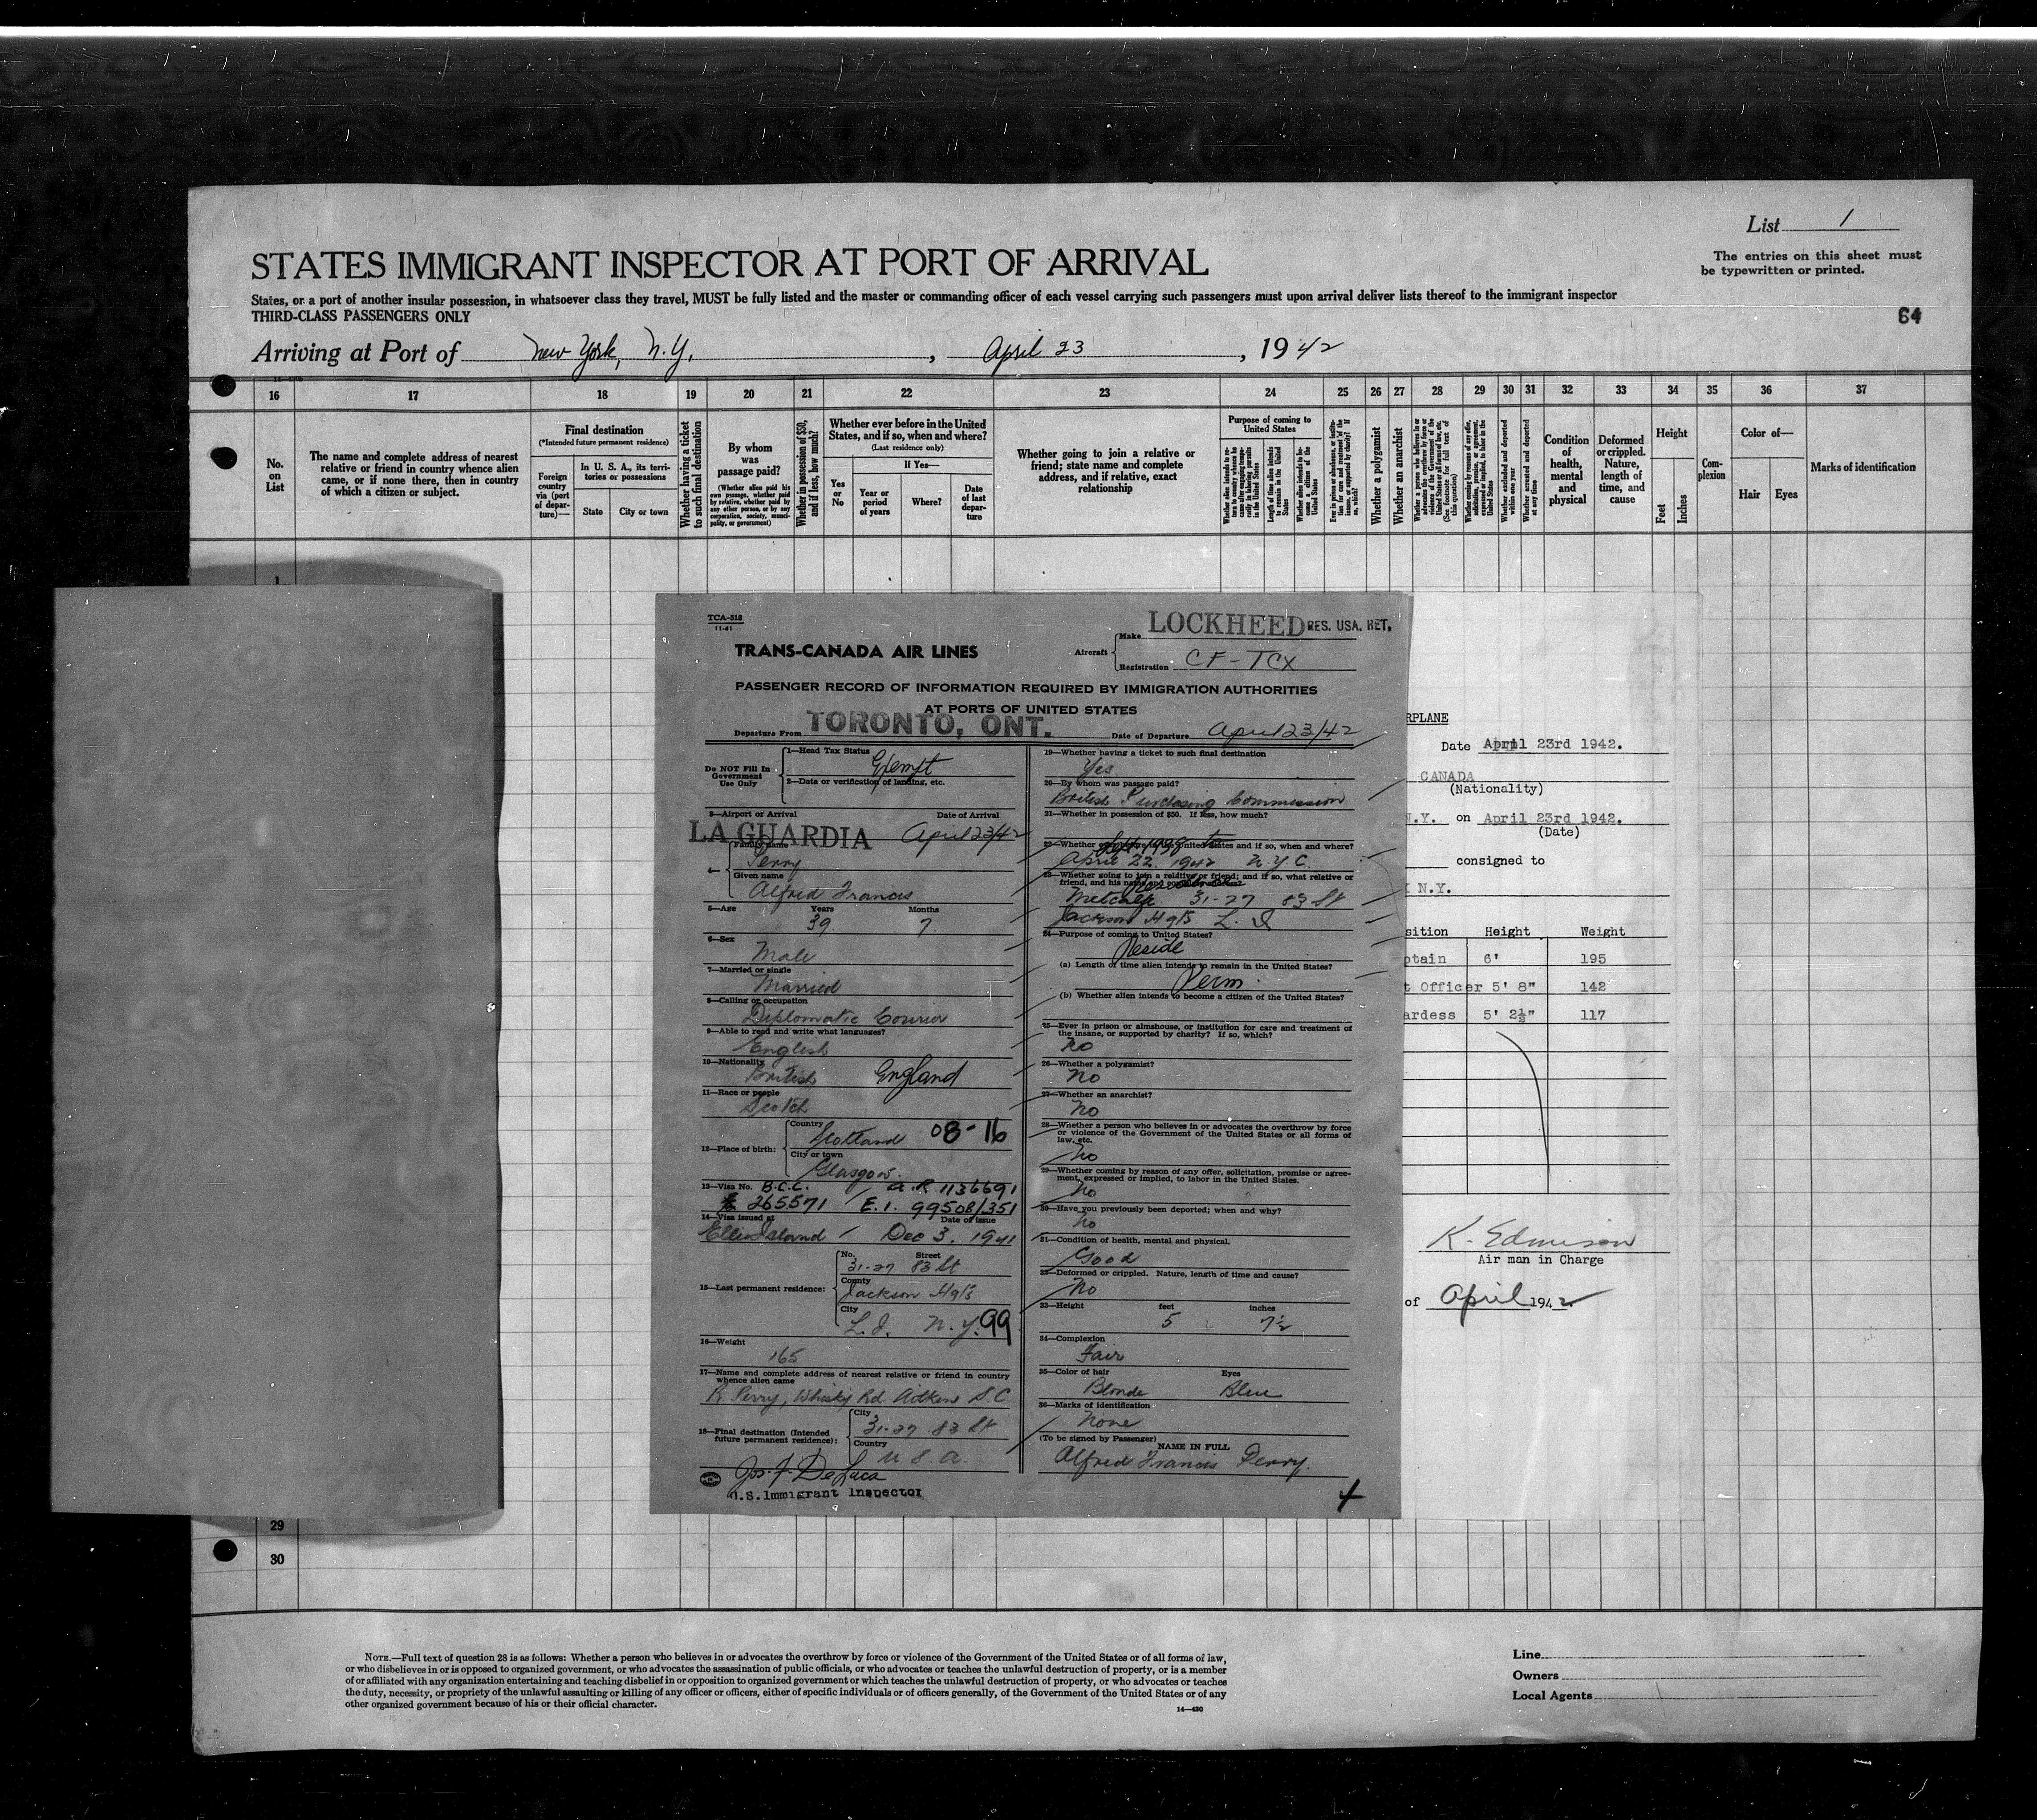 List 1
STATES IMMIGRANT INSPECTOR AT PORT OF ARRIVAL
The entries on this sheet must
be typewritten or printed.
States, or a port of another insular possession, in whatsoever class they travel, MUST be fully listed and the master or commanding officer of each vessel carrying such passengers must upon arrival deliver lists thereof to the immigrant inspector
THIRD-CLASS PASSENGERS ONLY
64
Arriving at Port of New York, N.Y., April 23, 1942
16 17 18 19 20 21 22 23 24 25 26 27 28 29 30 31 32 33 34 35 36 37
No. on List
The name and complete address of nearest
relative or friend in country whence alien
came, or if none there, then in country
of which a citizen or subject.
Final destination
(*Intended future permanent residence)
Foreign country via (port of departure)—
In U. S. A., its territories or possessions
State
City or town
Whether having a ticket to such final destination
By whom was passage paid?
(Whether alien paid his own passage, whether paid by relative, whether paid by any other person, or by any corporation, society, municipality, or government)
Whether in possession of $50, and if less, how much?
Whether ever before in the United
States, and if so, when and where?
(Last residence only)
Yes or No
If Yes—
Year or period of years
Where?
Date of last departure
Whether going to join a relative or
friend; state name and complete
address, and if relative, exact
relationship
Purpose of coming to
United States
Length of time alien intends to remain in the United States
Whether a polygamist
Whether an anarchist
Condition of health, mental and physical
Deformed or crippled. Nature, length of time, and cause
Height
Feet
Inches
Complexion
Color of—
Hair
Eyes
Marks of identification
TCA-518
11-41
TRANS-CANADA AIR LINES
Aircraft
Make LOCKHEED RES. USA. RET.
Registration CF-TCX
PASSENGER RECORD OF INFORMATION REQUIRED BY IMMIGRATION AUTHORITIES
AT PORTS OF UNITED STATES
Departure From TORONTO, ONT.
Date of Departure April 23/42
Do NOT Fill In
Government
Use Only
1—Head Tax Status
Exempt
2—Data or verification of landing, etc.
3—Airport or Arrival Date of Arrival
LA GUARDIA April 23/42
4—
Family name
Perry
Given name
Alfred Francis
5—Age Years Months
39 7
6—Sex
Male
7—Married or single
Married
8—Calling or occupation
Diplomatic Courier
9—Able to read and write what languages?
English
10—Nationality
British England
11—Race or people
Scotch
12—Place of birth:
Country
Scotland 08-16
City or town
Glasgow
13—Visa No. B.C.C. A.R 1136691
265571 E.I. 99508/351
14—Visa issued at Date of issue
Ellis Island Dec 3, 1941
15—Last permanent residence:
No. Street
31-27 83 St
County
Jackson Hgts
City
L.I. N.Y. 99
16—Weight
165
17—Name and complete address of nearest relative or friend in country
whence alien came
R. Perry, Whisky Rd. Aitken S.C
18—Final destination (Intended
future permanent residence):
City
31-27 83 St
Country
U S A.
Jos. F. De Luca
U.S. Immigrant Inspector
19—Whether having a ticket to such final destination
Yes
20—By whom was passage paid?
British Purchasing Commission
21—Whether in possession of $50. If less, how much?
22—Whether ever before in the United States and if so, when and where?
Sept 1938 to
April 22 1942 N.Y.C.
23—Whether going to join a relative or friend; and if so, what relative or
friend, and his name and complete address
Metcalfe 31-27 83 St
Jackson Hgts L. I
24—Purpose of coming to United States?
Reside
(a) Length of time alien intends to remain in the United States?
Perm.
(b) Whether alien intends to become a citizen of the United States?
25—Ever in prison or almshouse, or institution for care and treatment of
the insane, or supported by charity? If so, which?
No
26—Whether a polygamist?
No
27—Whether an anarchist?
No
28—Whether a person who believes in or advocates the overthrow by force
or violence of the Government of the United States or all forms of
law, etc.
No
29—Whether coming by reason of any offer, solicitation, promise or agree-
ment, expressed or implied, to labor in the United States.
No
30—Have you previously been deported; when and why?
No
31—Condition of health, mental and physical.
Good
32—Deformed or crippled. Nature, length of time and cause?
No
33—Height feet inches
5 7½
34—Complexion
Fair
35—Color of hair Eyes
Blonde Blue
36—Marks of identification
None
(To be signed by Passenger)
NAME IN FULL
Alfred Francis Perry.
RPLANE
Date April 23rd 1942.
CANADA
(Nationality)
N.Y. on April 23rd 1942.
(Date)
consigned to
N.Y.
sition Height Weight
ptain 6' 195
t Officer 5' 8" 142
ardess 5' 2½" 117
K. Edmison
Air man in Charge
of April 1942
29
30
NOTE.—Full text of question 28 is as follows: Whether a person who believes in or advocates the overthrow by force or violence of the Government of the United States or of all forms of law,
or who disbelieves in or is opposed to organized government, or who advocates the assassination of public officials, or who advocates or teaches the unlawful destruction of property, or is a member
of or affiliated with any organization entertaining and teaching disbelief in or opposition to organized government or which teaches the unlawful destruction of property, or who advocates or teaches
the duty, necessity, or propriety of the unlawful assaulting or killing of any officer or officers, either of specific individuals or of officers generally, of the Government of the United States or of any
other organized government because of his or their official character.
14—430
Line
Owners
Local Agents